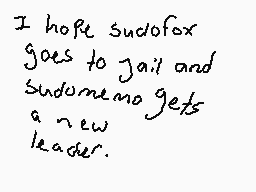 I hope sudofox
goes to jail and
sudomemo gets
a new
leader.